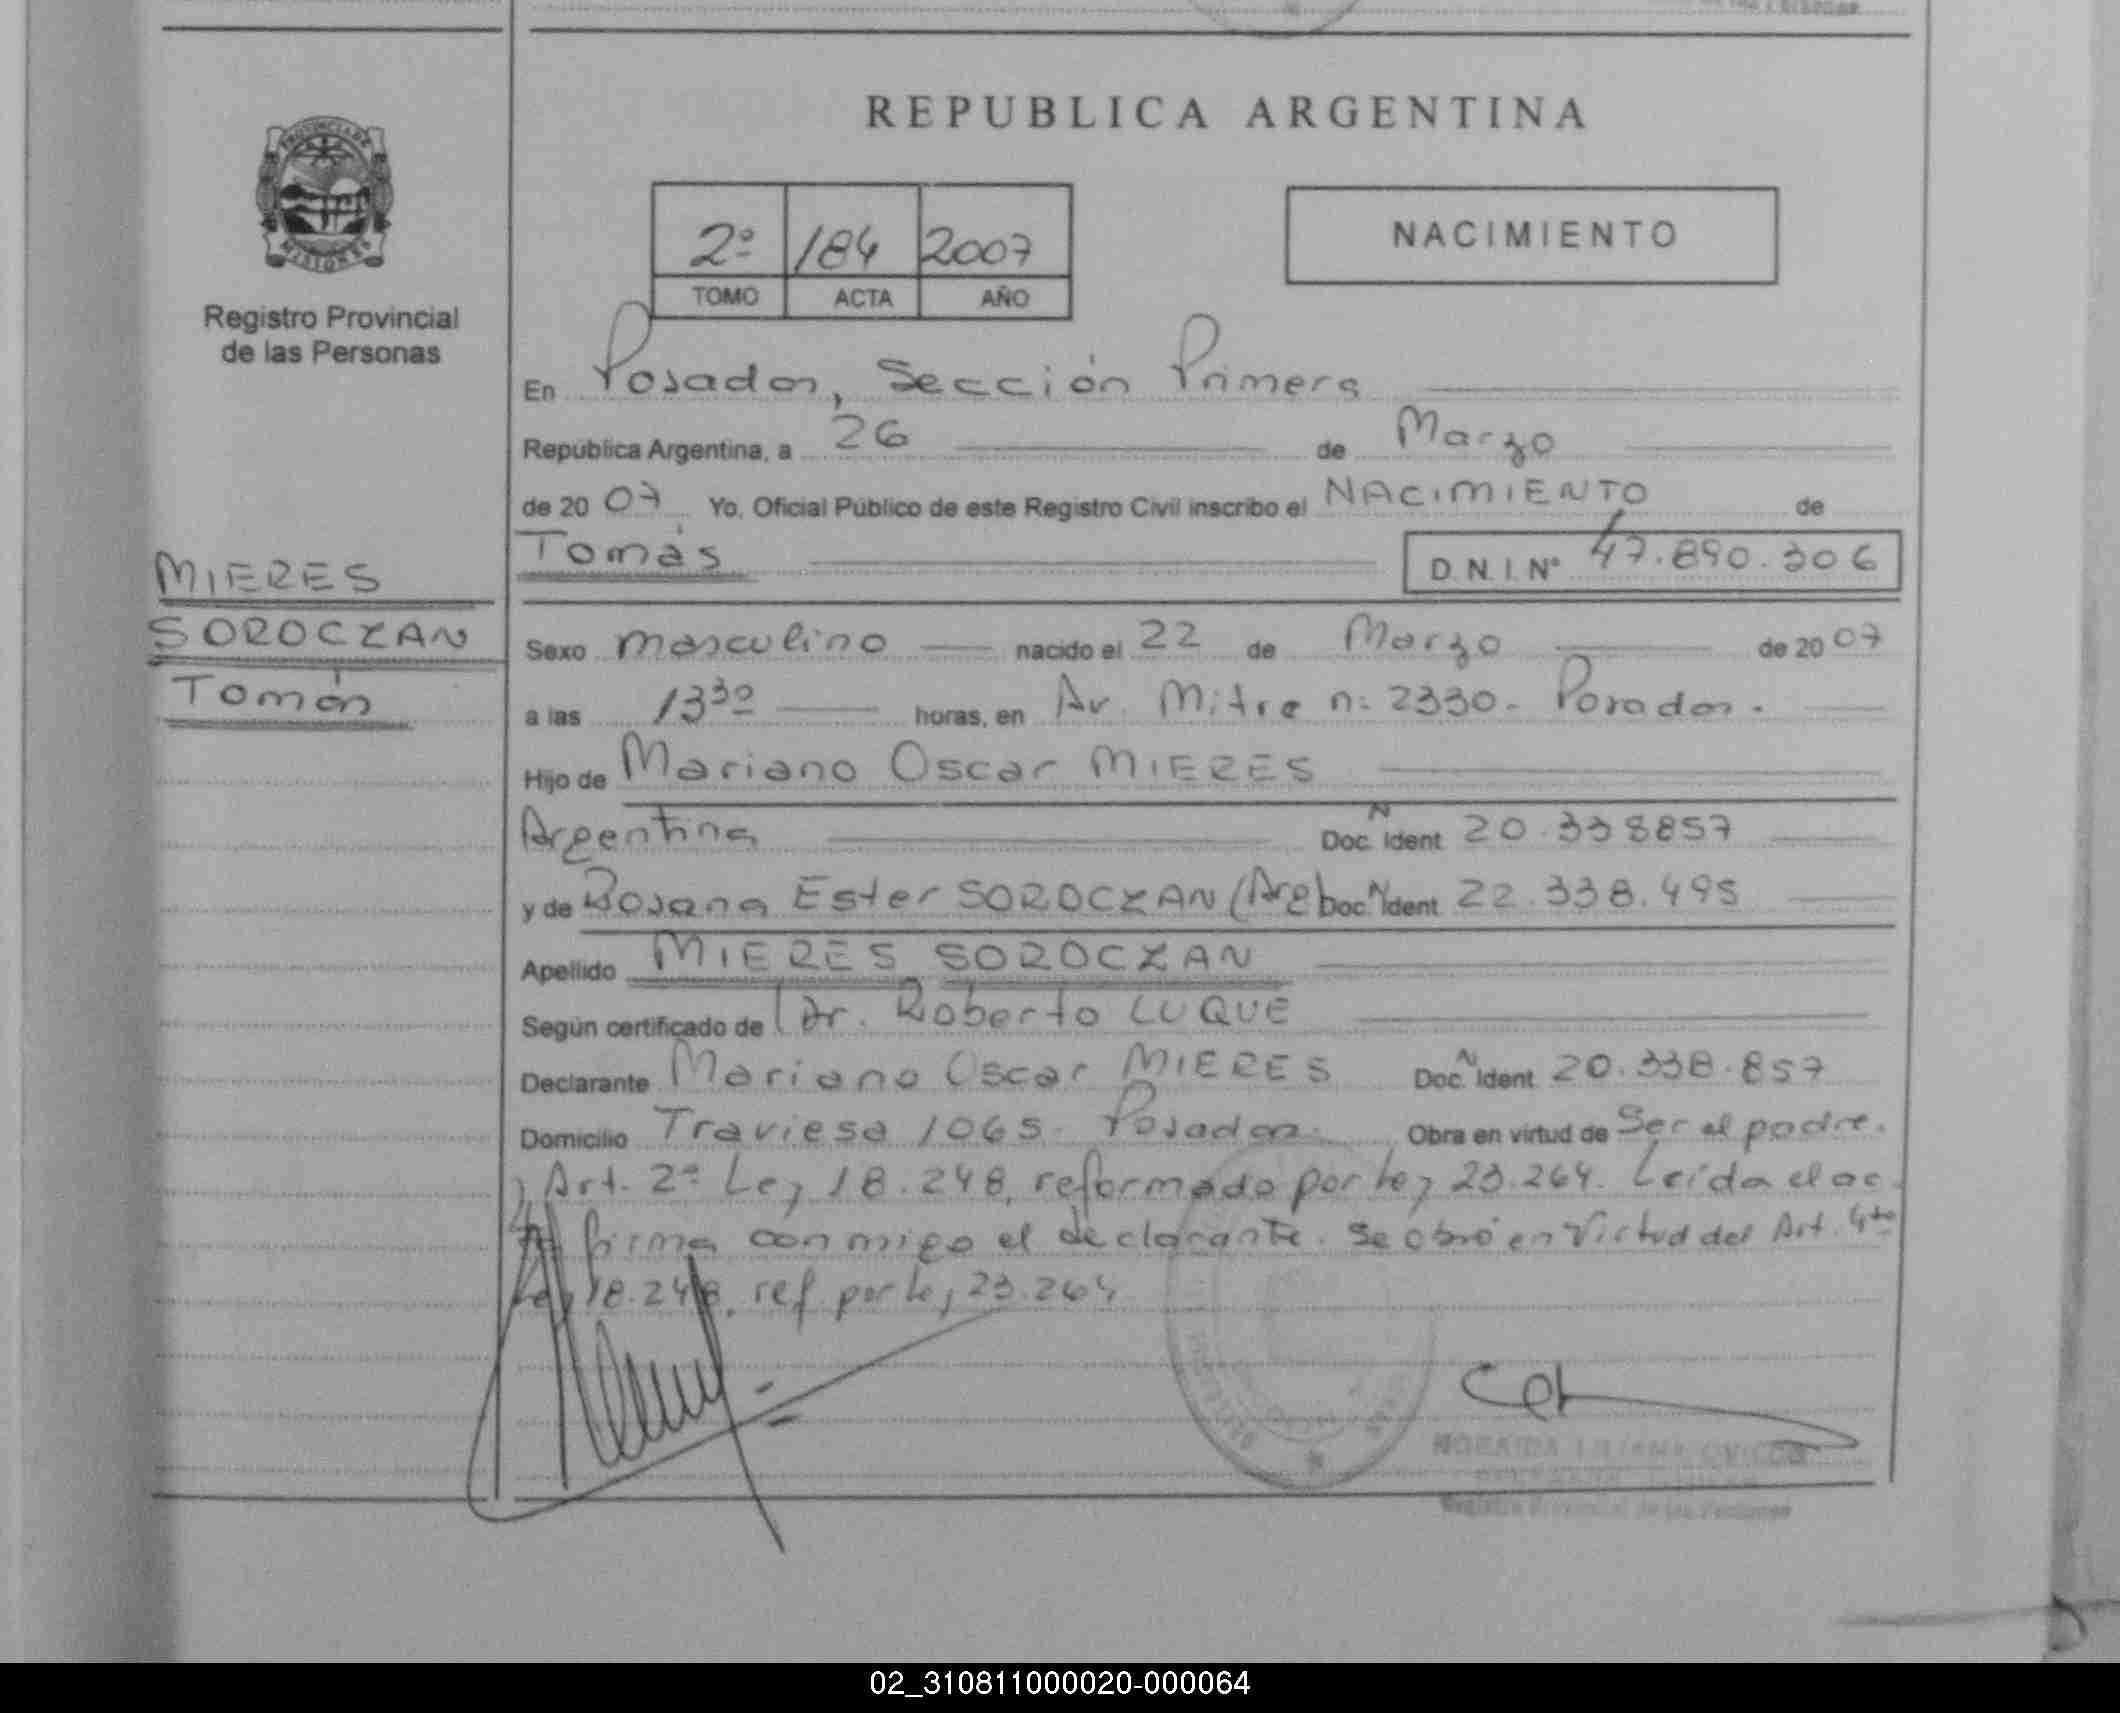 REPUBLICA ARGENTINA
PROVINCIA DE
MISIONES
Registro Provincial
de las Personas
2º 184 2007
TOMO ACTA AÑO
NACIMIENTO
En Posadas, Sección Primera
República Argentina, a 26 de Marzo
de 20 07 Yo, Oficial Público de este Registro Civil inscribo el NACIMIENTO de
Tomás D.N.I. Nº 47.890.306
MIERES
SOROCZAN
Tomás
Sexo masculino nacido el 22 de Marzo de 20 07
a las 13³⁰ horas, en Av. Mitre n: 2330. Posadas.
Hijo de Mariano Oscar MIERES
Argentina Doc. N Ident 20.338857
y de Rosana Ester SOROCZAN (Arg) Doc. N Ident 22.338.495
Apellido MIERES SOROCZAN
Según certificado de Dr. Roberto LUQUE
Declarante Mariano Oscar MIERES Doc. N Ident 20.338.857
Domicilio Traviesa 1065. Posadas. Obra en virtud de Ser el padre.
Art. 2º Ley 18.248, reformado por ley 23.264. Leída el ac
firma conmigo el declarante. Se obró en Virtud del Art. 4to
Ley 18.248, ref por ley 23.264
Registro Provincial de las Personas
02_310811000020-000064